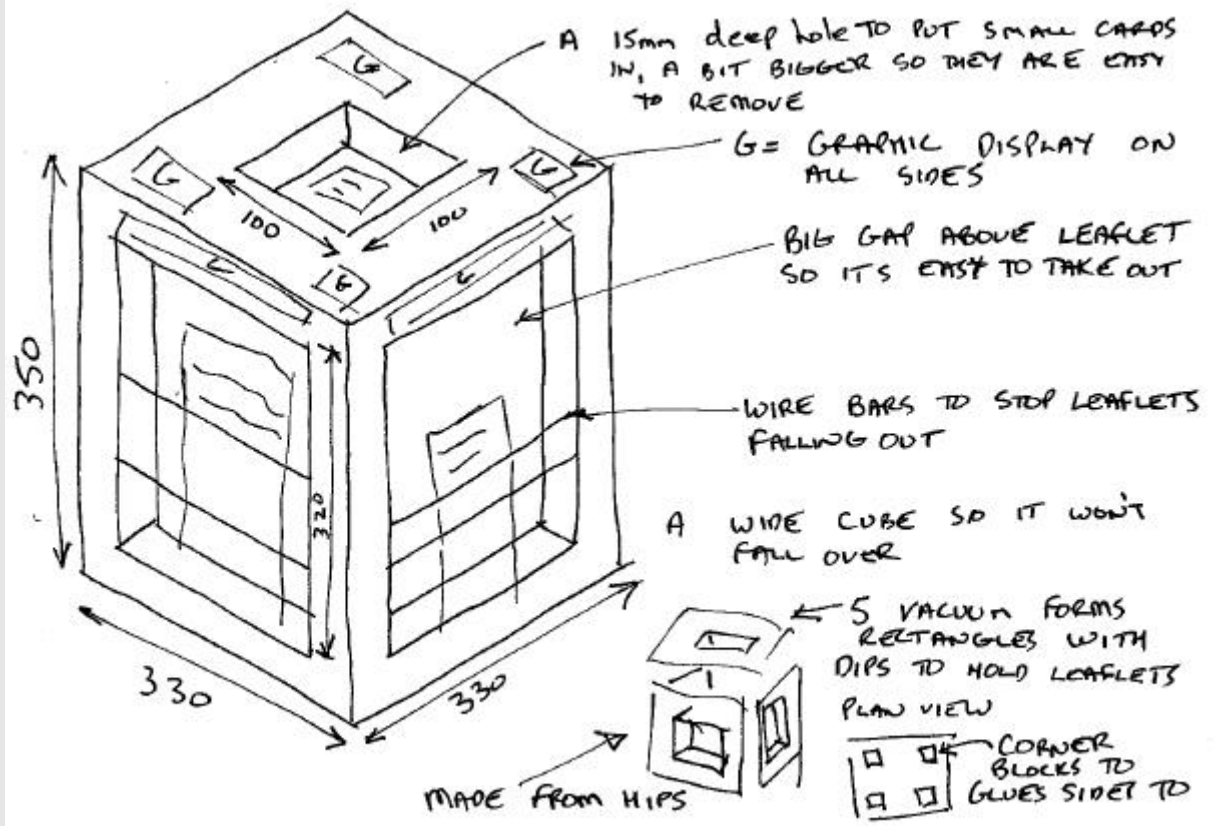 A 15mm deep hole TO PUT SMALL CARDS
IN, A BIT BIGGER SO THEY ARE EASY
TO REMOVE
G= GRAPHIC DISPLAY ON
ALL SIDES
BIG GAP ABOVE LEAFLET
SO ITS EASY TO TAKE OUT
WIRE BARS TO STOP LEAFLETS
FALLING OUT
A WIDE CUBE SO IT WON'T
FALL OVER
5 VACUUM FORMS
RECTANGLES WITH
DIPS TO HOLD LEAFLETS
PLAN VIEW
CORNER
BLOCKS TO
GLUES SIDES TO
MADE FROM HIPS
G
G
G
G
G
100
100
350
320
330
330